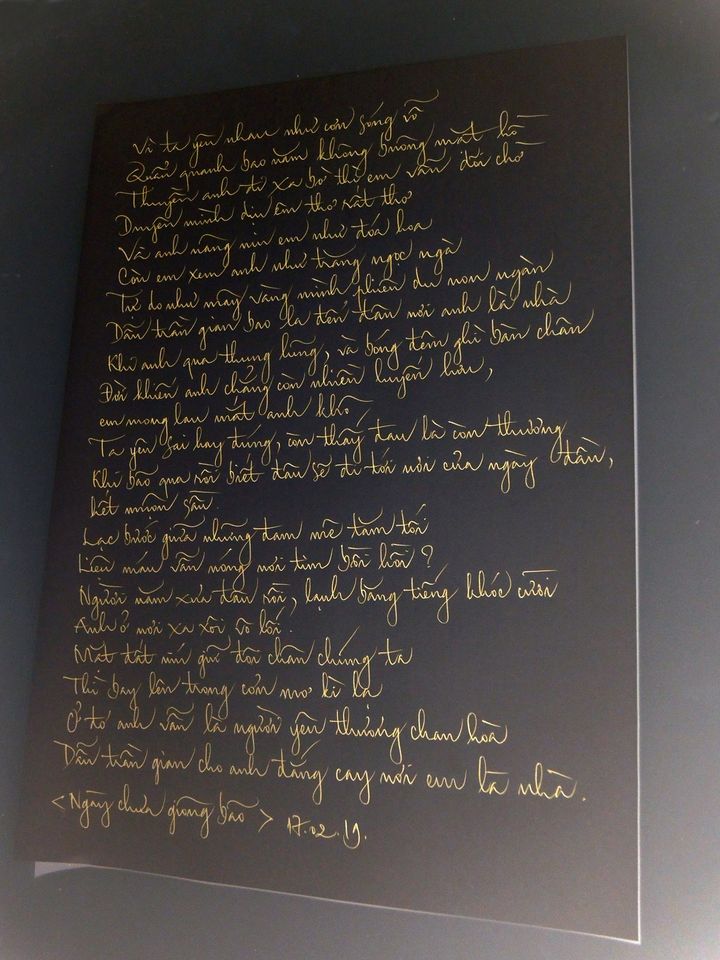 Vì ta yêu nhau như cơn sóng vỗ
Quẩn quanh bao năm không buông mặt hồ
Thuyền anh đi xa bờ thì em vẫn đợi chờ
Duyên mình dịu êm thơ rất thơ
Và anh nâng niu em như đóa hoa
Còn em xem anh như trăng ngọc ngà
Tự do như mây vàng mình phiêu du non ngàn
Dẫu trần gian bao la đến đâu nơi anh là nhà
Khi anh qua thung lũng, và bóng đêm ghì bàn chân
Đời khiến anh chẳng còn nhiều luyến lưu,
em mong lau mắt anh khô
Ta yêu sai hay đúng, còn thấy đau là còn thương
Khi bão qua rồi biết đâu sẽ đi tới nơi của ngày đầu,
hết muộn sầu.
Lạc bước giữa những đam mê tăm tối
Liệu máu vẫn nóng nơi tim bồi hồi?
Người năm xưa đâu rồi, lạnh băng tiếng khóc cười
Anh ở nơi xa xôi vô lối.
Mặt đất níu giữ đôi chân chúng ta
Thì bay lên trong cơn mơ kì lạ
Ở đó anh vẫn là người yêu thương chan hòa
Dẫu trần gian cho anh đắng cay nơi em là nhà.
<Ngày chưa giông bão> 17.02.19.